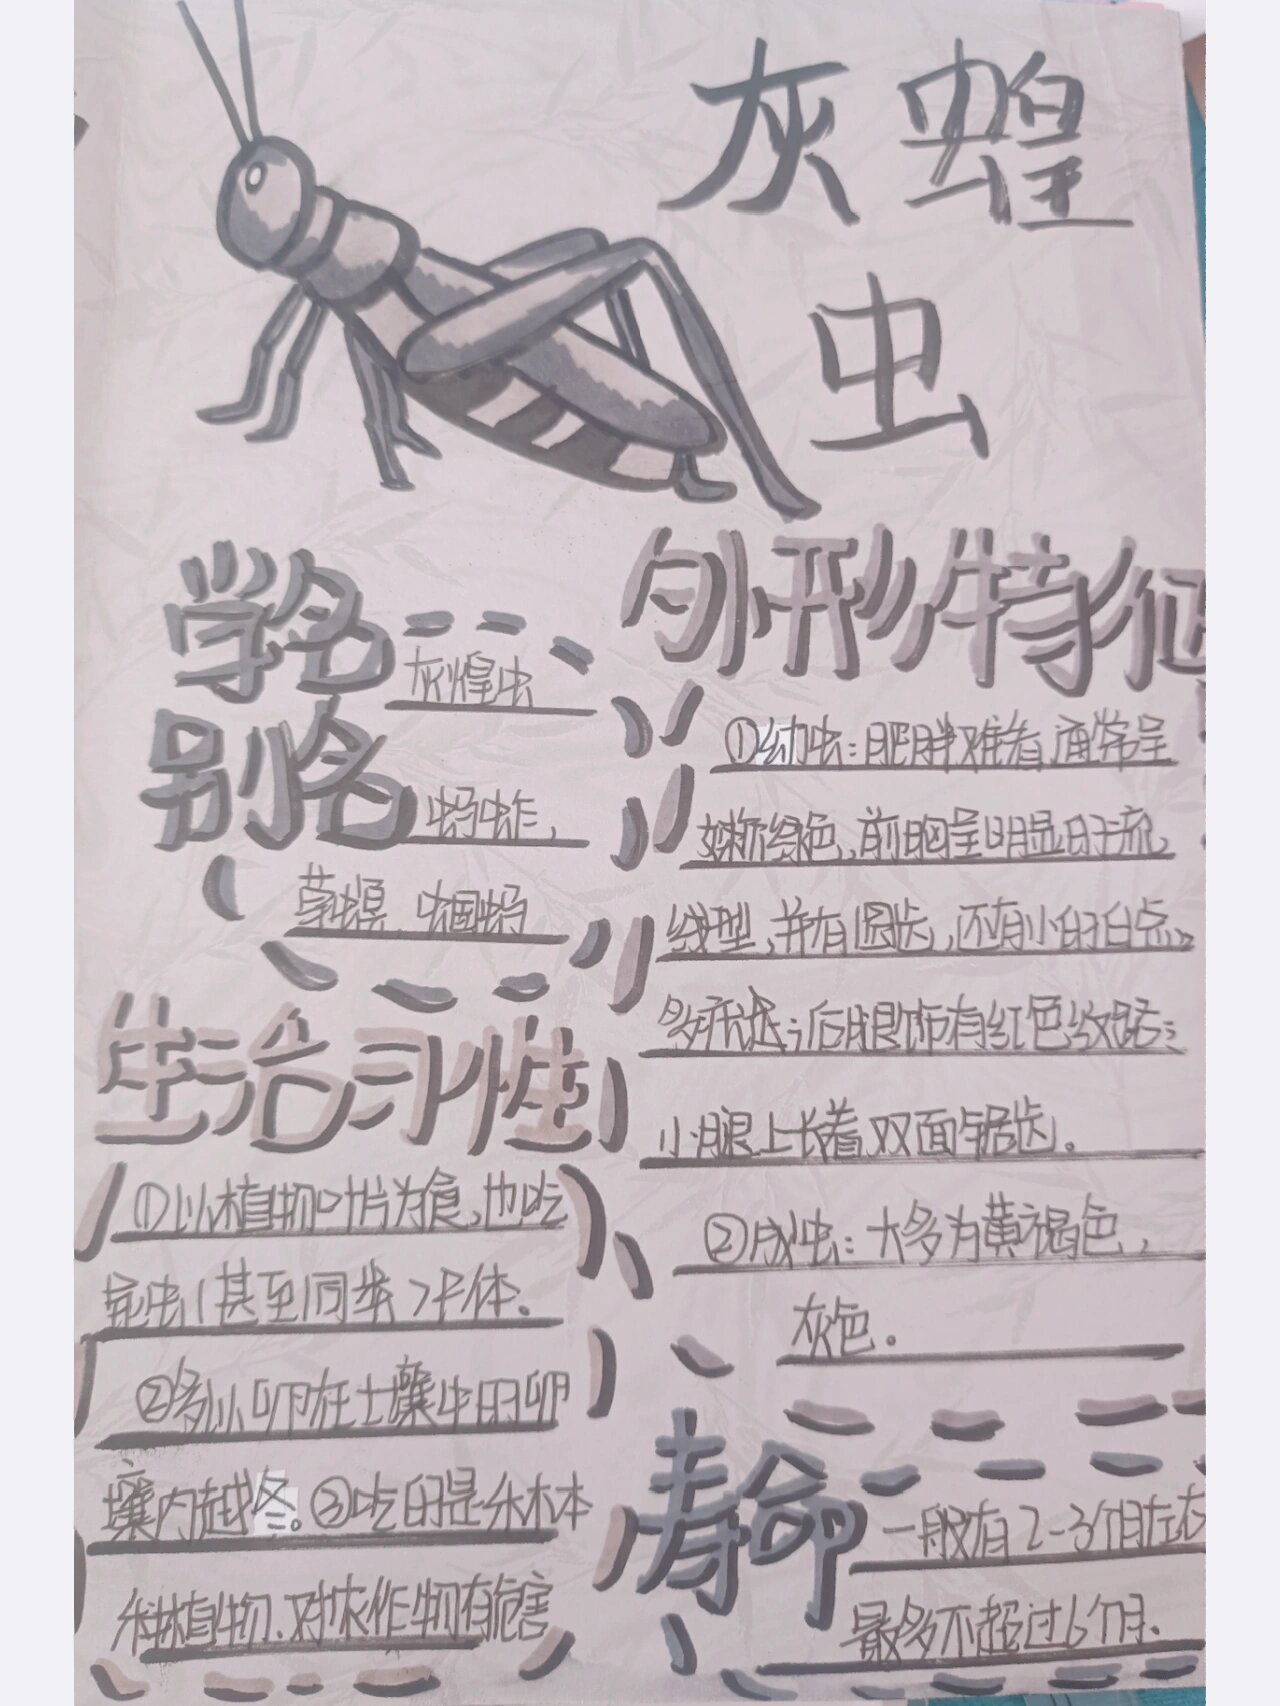 灰蝗
虫
学名
灰煌虫
别名
蚂蚱,
草螟、蝈蚂
生活习性
①以植物叶片为食,也吃
昆虫(甚至同类)尸体.
②多以卵在土壤中的卵
壤内越冬。③吃的是禾木本
科植物、对农作物有危害
外形特征
①幼虫:肥胖难看,通常呈
嫩绿色,前胸呈明显的流
线型,并有圆齿,还有小的白点
后腿饰有红色纹路;
小腿上长着双面锯齿。
②成虫:大多为黄褐色,
灰色。
寿命
一般有2-3个月左右
最多不超过6个月.